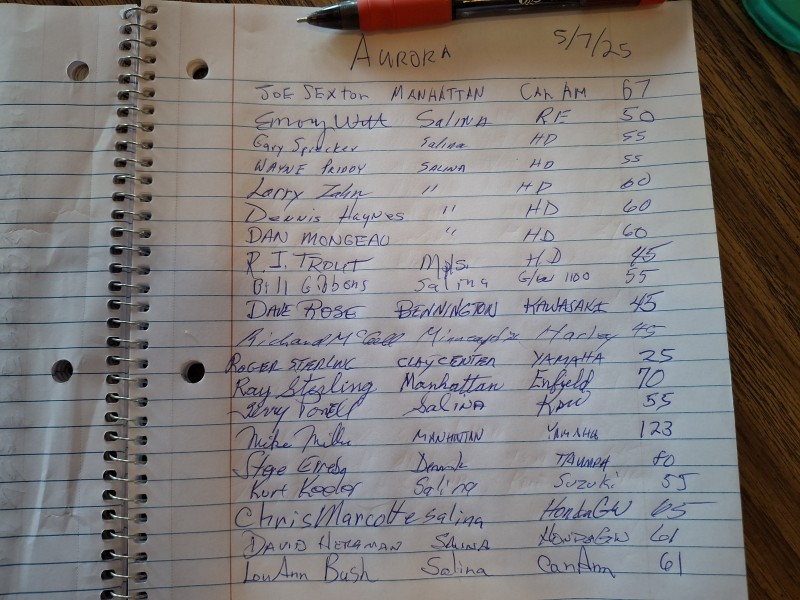 AURORA 5/7/25
JOE SEXTON MANHATTAN CAN AM 67
Emory Witt Salina RE 50
Gary Sprecker Salina HD 55
WAYNE PRIDDY SALINA HD 55
Larry Zahn " HD 60
Dennis Haynes " HD 60
DAN MONGEAU " HD 60
R.I. TROUT Mpls. HD 45
Bill Gibbens Salina 1100 55
DAVE ROSE BENNINGTON KAWASAKI 45
Richard McCall Minneapolis Harley 45
ROGER STERLING CLAY CENTER YAMAHA 25
Ray Sterling Manhattan Enfield 70
Jerry Salina Kaw 55
Mike MANHATTAN YAMAHA 123
Steve 80
Kurt Salina Suzuki 55
Chris Marcotte Salina Honda GW 65
DAVID HERRMAN SALINA HONDA GW 61
LouAnn Bush Salina CanAm 61